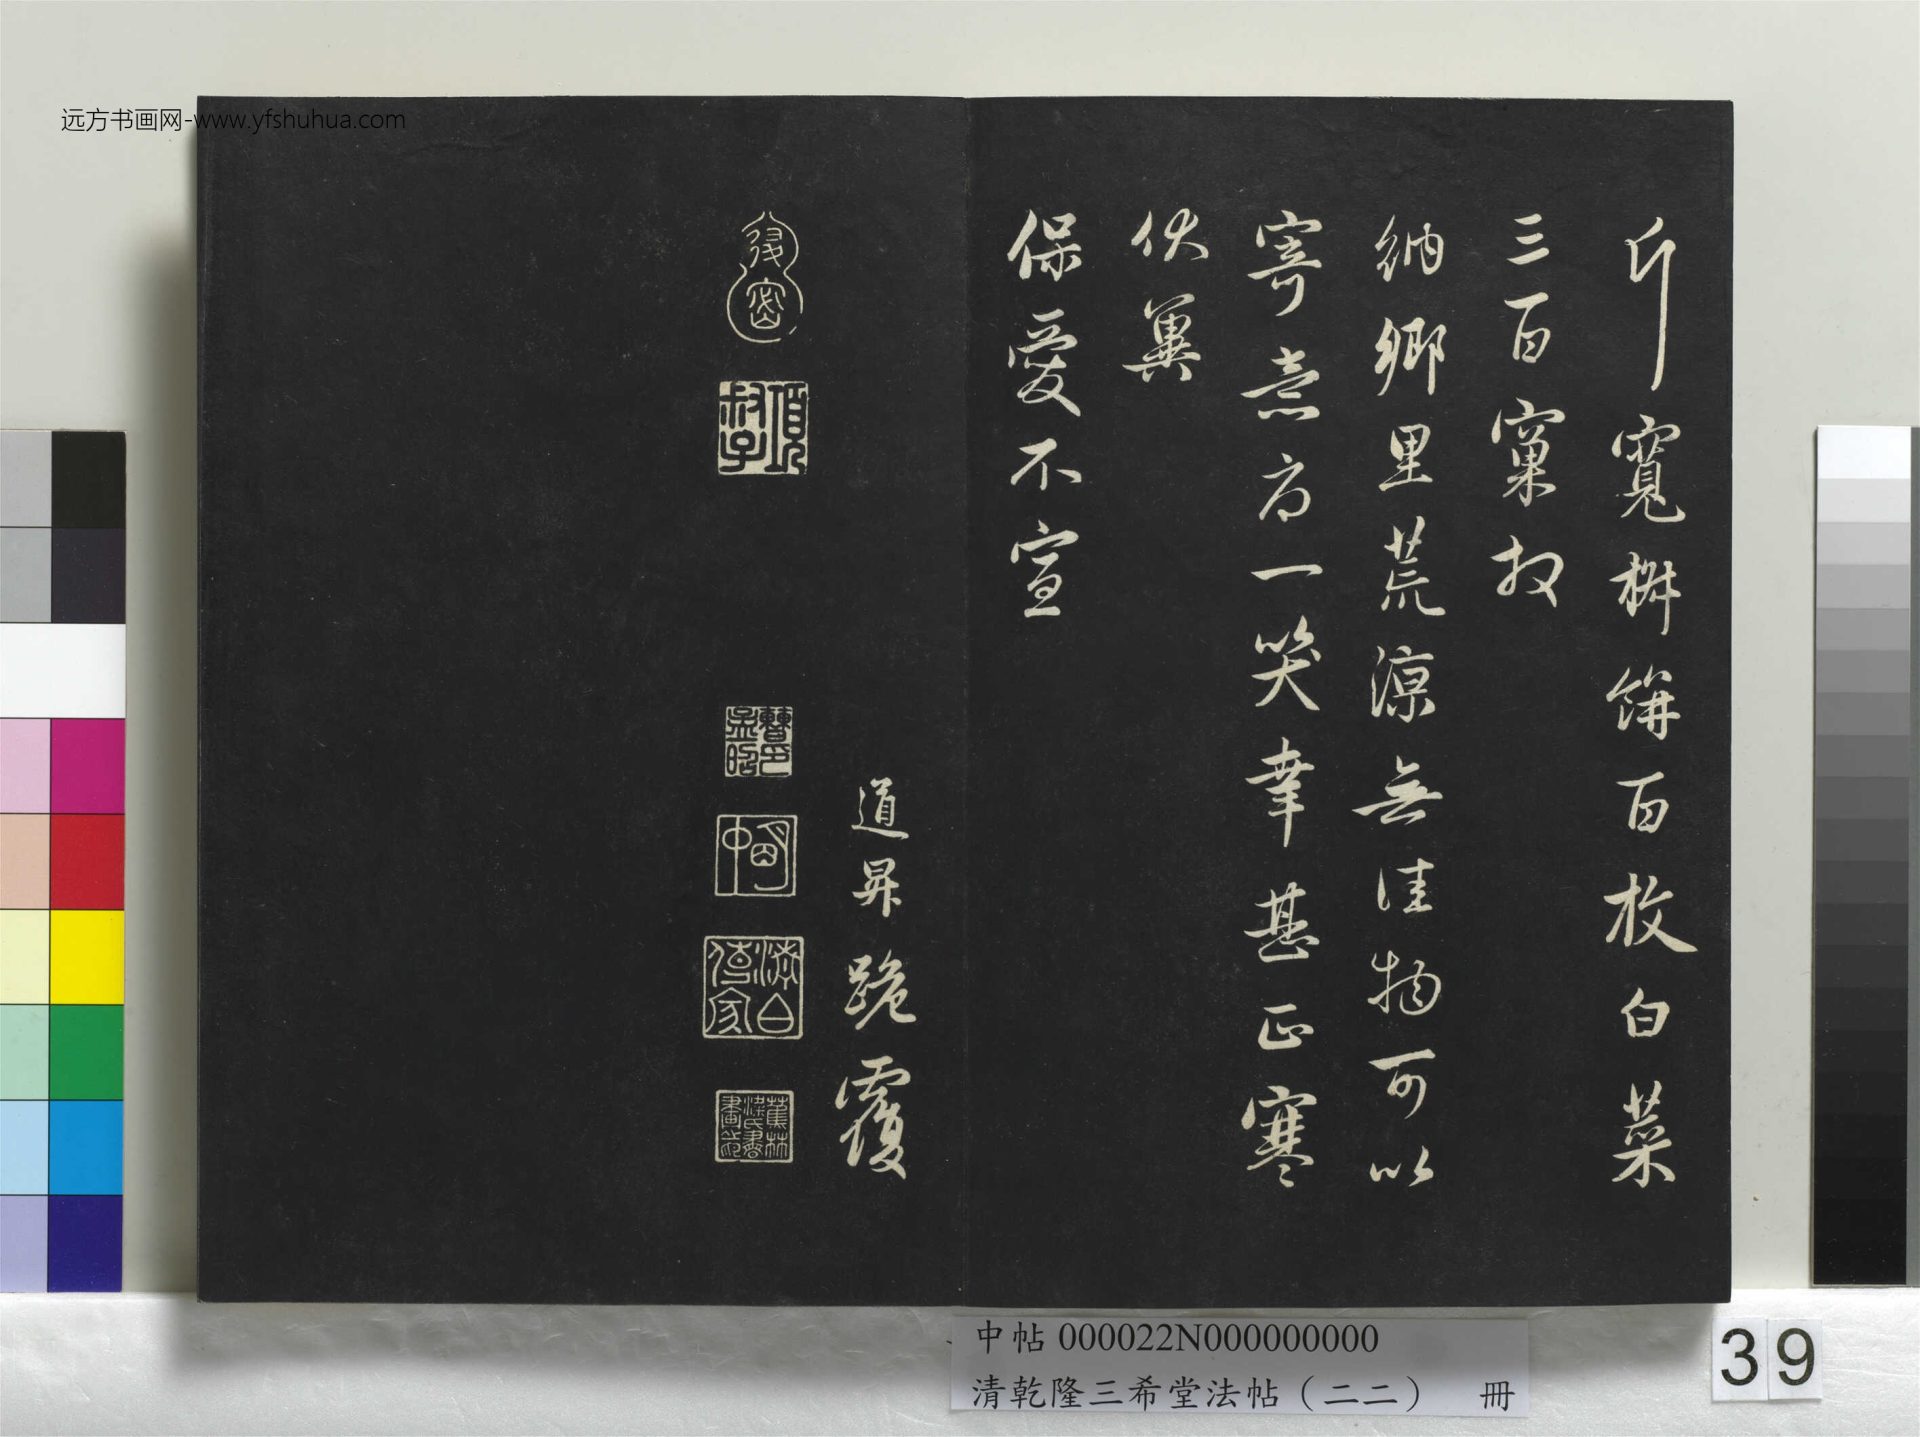 远方书画网-www.yfshuhua.com
斤寬栟餅百枚白菜
三百窠
納鄉里荒涼無佳物可以
寄意为一笑幸甚正寒
伏冀
保愛不宣
道昇跪覆
項叔子
蕉林梁氏書畫之印
中帖 000022N000000000
清乾隆三希堂法帖（二二） 冊
39